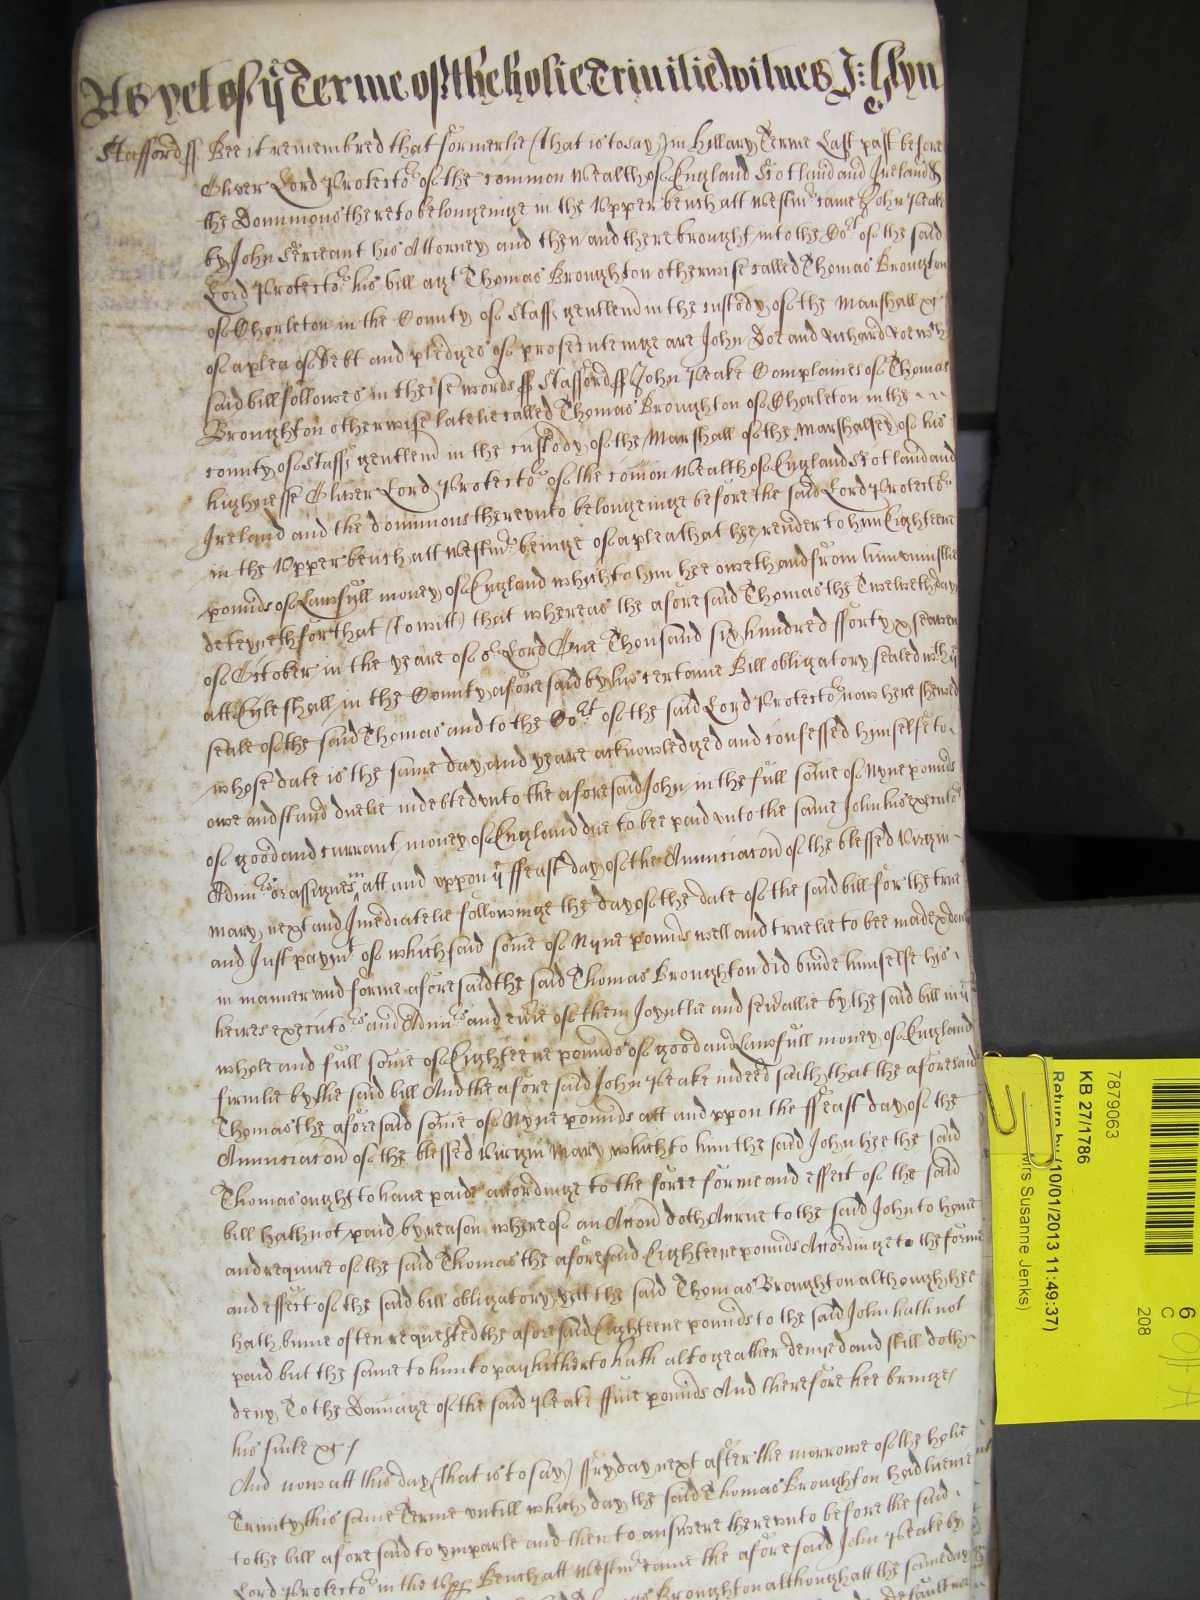 As yet of ye Terme of the holie Trinitie witnes J: Glyn
Stafford ss Bee it remembred that formerlie (that is to say) in hillary Terme Last past before
Oliver Lord Protector of the Common Wealth of England Scotland and Ireland &
the Dominions thereto belongeinge in the Upper bench att Westmr came John Peake
by John Serieant his Attorney and then and there brought into the Cort of the said
Lord Protector his bill agt Thomas Broughton otherwise called Thomas Broughton
of Chorleton in the County of Staff gentlem in the custody of the Marshall &c
of a plea of Debt and pledges of prosecuteinge are John Doe and Richard Roe wch
said bill followes in theise words ss Stafford ss John Peake Complaines of Thomas
Broughton otherwise latelie called Thomas Broughton of Chorleton in the
county of Staff gentlem in the custody of the Marshall of the Marshalsey of his
highnesse Oliver Lord Protector of the comon Wealth of England Scotland and
Ireland and the dominions thereunto belongeinge before the said Lord Protector
in the Upper bench att Westmr beinge of a plea that hee render to him Eighteene
pounds of Lawfull money of England which to him hee oweth and from him uniustlie
deteyneth for that (to witt) that whereas the aforesaid Thomas the Twelveth day
of October in the yeare of or Lord One Thousand six hundred fforty & seaven
att Ecleshall in the County aforesaid by his certaine Bill obligatory sealed wth ye
seale of the said Thomas and to the Cort of the said Lord Protector now here shewed
whose date is the same day and yeare acknowledged and confessed himselfe to
owe and stand duelie indebted unto the aforesaid John in the full some of Nyne pounds
of good and currant money of England due to bee paid unto the same John his executors
Adminrs or assignes in att and uppon ye ffeast day of the Anunciacon of the blessed Virgin
Mary next and Imediatelie followinge the day of the date of the said bill for the true
and Just paymt of which said some of Nyne pounds well and truelie to bee made & don
in manner and forme aforesaid the said Thomas Broughton did binde himselfe his
heires executors and Adminrs and everie of them Joyntlie and severallie by the said bill in ye
whole and full some of Eighteene pounds of good and Lawfull money of England
firmlie by the said bill And the aforesaid John Peake indeed saith that the aforesaid
Thomas the aforesaid some of Nyne pounds att and uppon the ffeast day of the
Anunciacon of the blessed Virgin Mary which to him the said John hee the said
Thomas ought to have paide accordinge to the force forme and effect of the said
bill hath not paid by reason whereof an Accon doth Accrue to the said John to have
and require of the said Thomas the aforesaid Eighteene pounds Accordinge to the forme
and effect of the said bill obligatory yett the said Thomas Broughton although hee
hath bine often requested the aforesaid Eighteene pounds to the said John hath not
paid but the same to him to pay hitherto hath altogeather denyed and still doth
deny To the Damage of the said Peake ffive pounds And therefore hee bringes
his suite &c /
And now att this day (that is to say) ffryday next after the morrowe of the holie
Trinity this same Terme untill which day the said Thomas Broughton had licence
to the bill aforesaid to ymparle and then to answere thereunto before the said
Lord Protector in the Upp Bench att Westmr came the aforesaid John Peake by
Broughton although att the same day
default
7879063
KB 27/1786
Return by (10/01/2013 11:49:37)
Mrs Susanne Jenks)
6
C
208